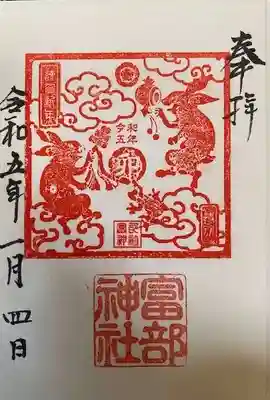 奉拝
謹賀新年
令和五年
卯
富部神社
令和五年一月四日